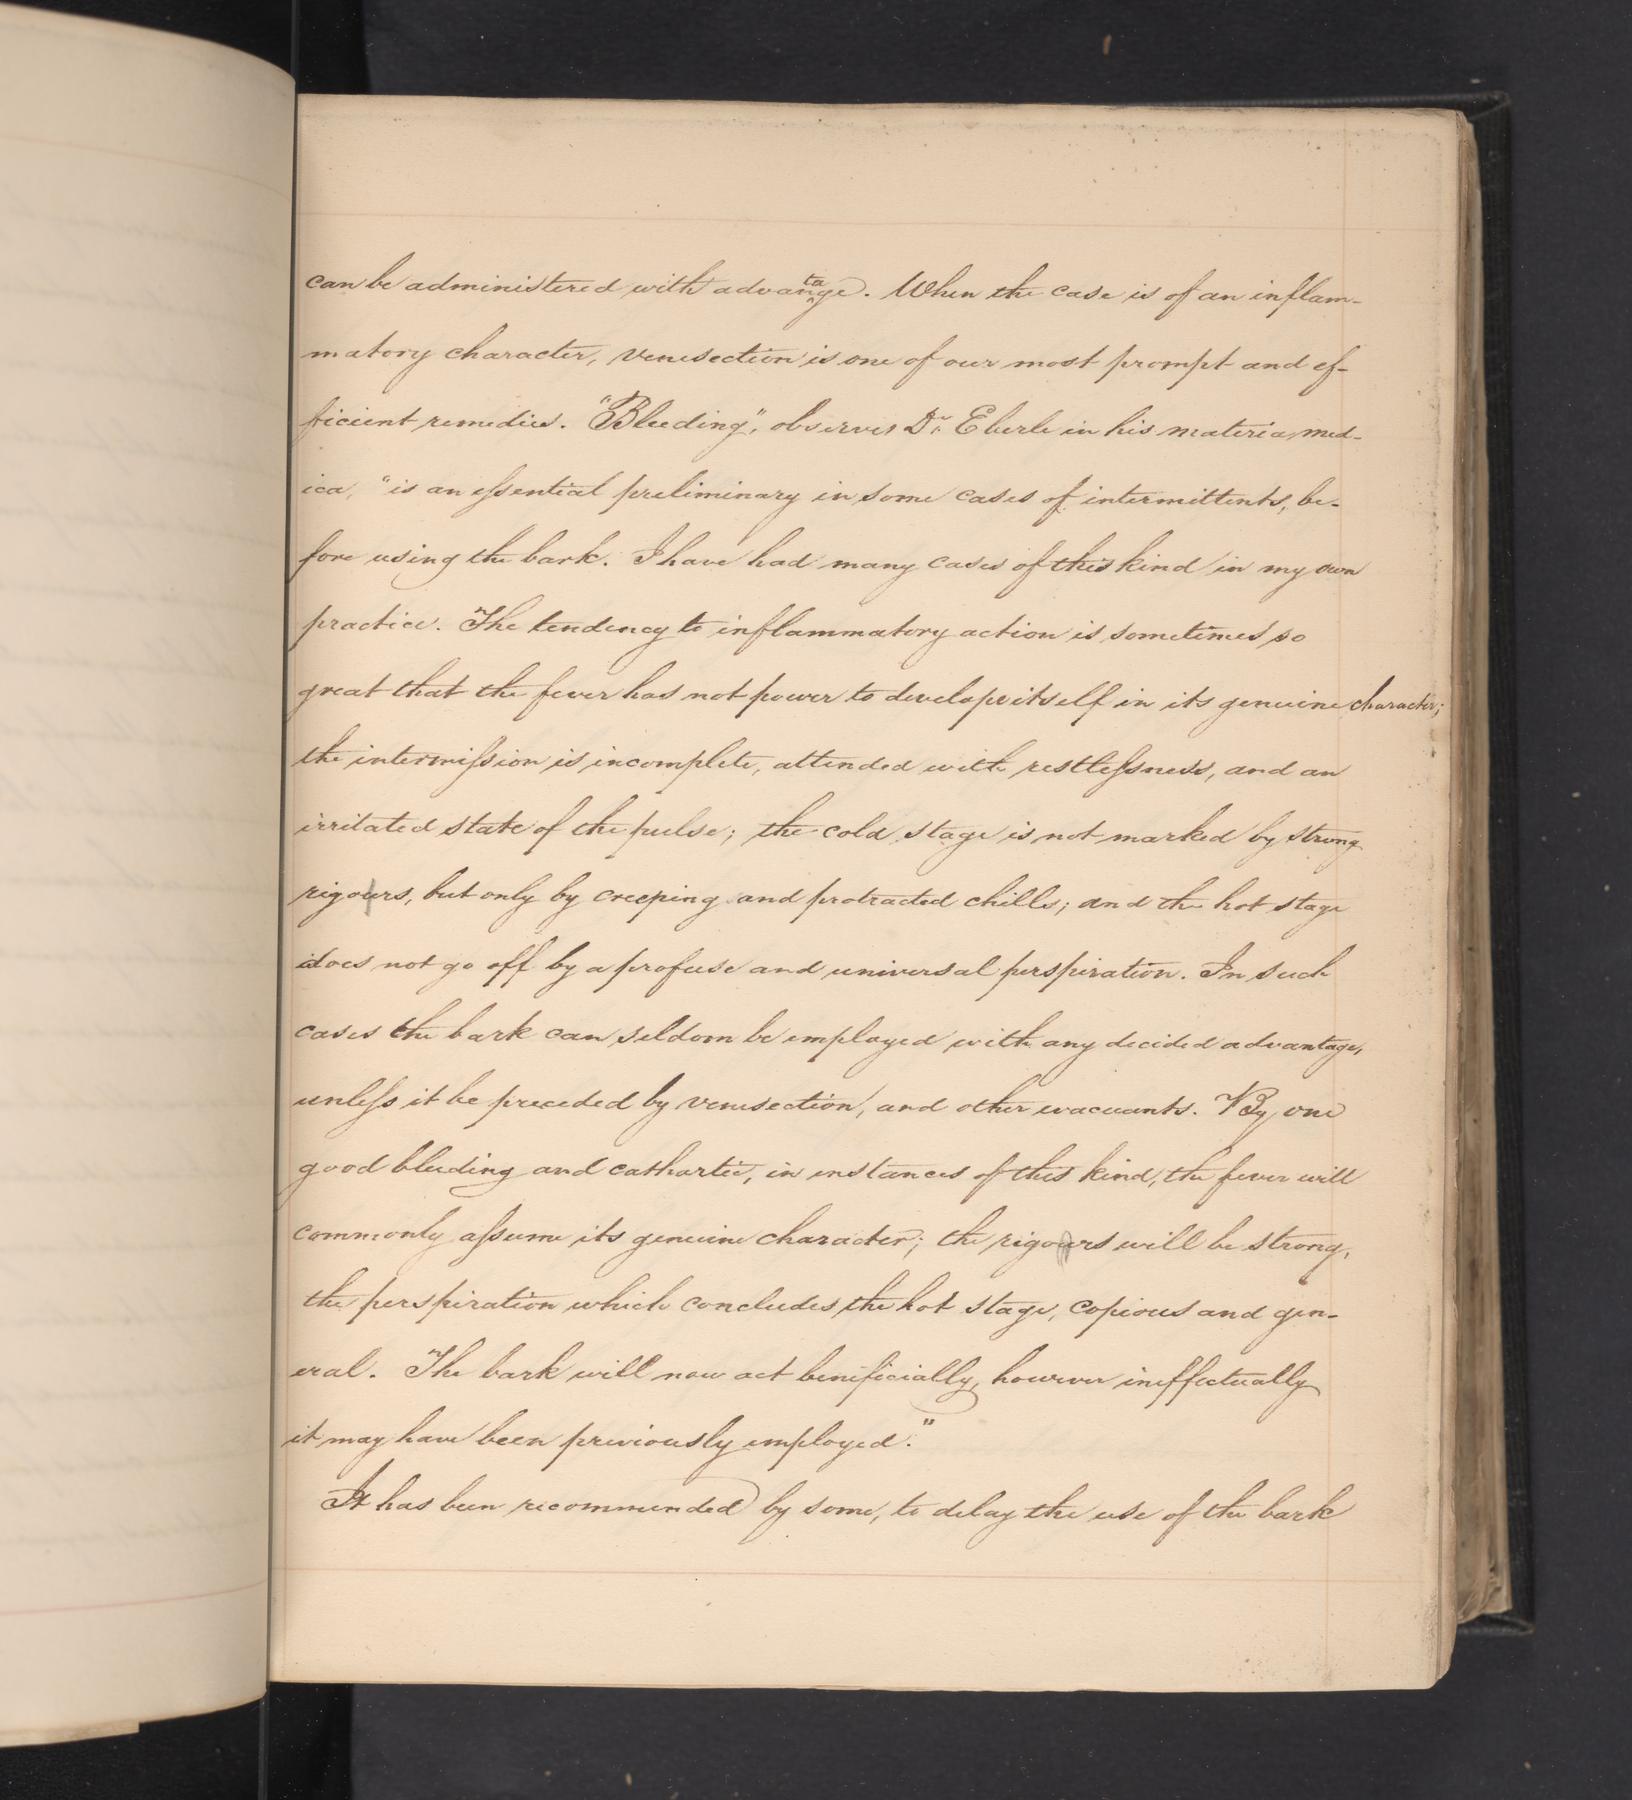 can be administered with advantage. When the case is of an inflam-
matory character, venesection is one of our most prompt and ef-
ficient remedies. "Bleeding", observes Dr. Eberle in his materia med-
ica, "is an essential preliminary in some cases of intermittents, be-
fore using the bark. I have had many cases of this kind in my own
practice. The tendency to inflammatory action is sometimes so
great that the fever has not power to develope itself in its genuine character;
the intermission is incomplete, attended with restlessness, and an
irritated state of the pulse; the cold stage is not marked by strong
rigours, but only by creeping and protracted chills; and the hot stage
does not go off by a profuse and universal perspiration. In such
cases the bark can seldom be employed with any decided advantage,
unless it be preceded by venesection, and other evacuants. By one
good bleeding and cathartic, in instances of this kind, the fever will
commonly assume its genuine character; the rigours will be strong,
the perspiration which concludes the hot stage, copious and gen-
eral. The bark will now act benificially, however ineffectually
it may have been previously employed."
It has been recommended by some, to delay the use of the bark